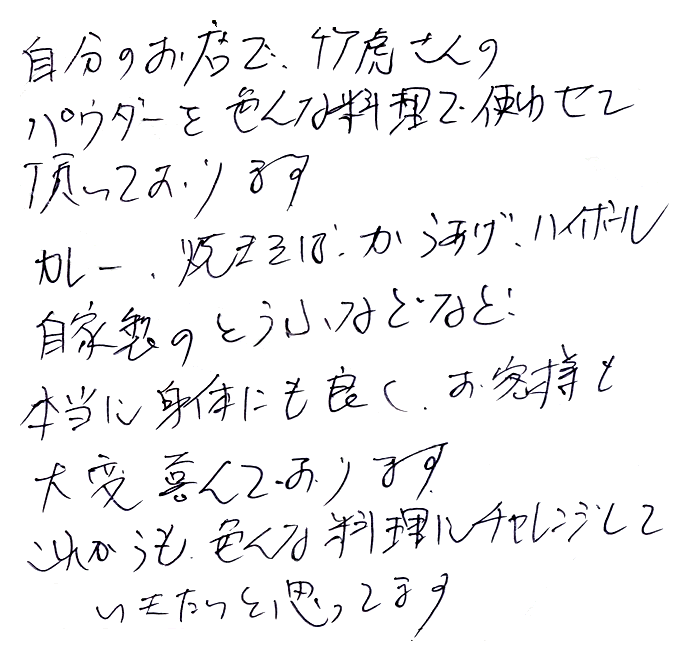 自分のお店で、竹虎さんの
パウダーを色んな料理で使わせて
頂いております
カレー、焼きそば、からあげ、ハイボール
自家製のとうふなどなど
本当に身体にも良く、お客様も
大変喜んでおります
これからも、色んな料理にチャレンジして
いきたいと思ってます